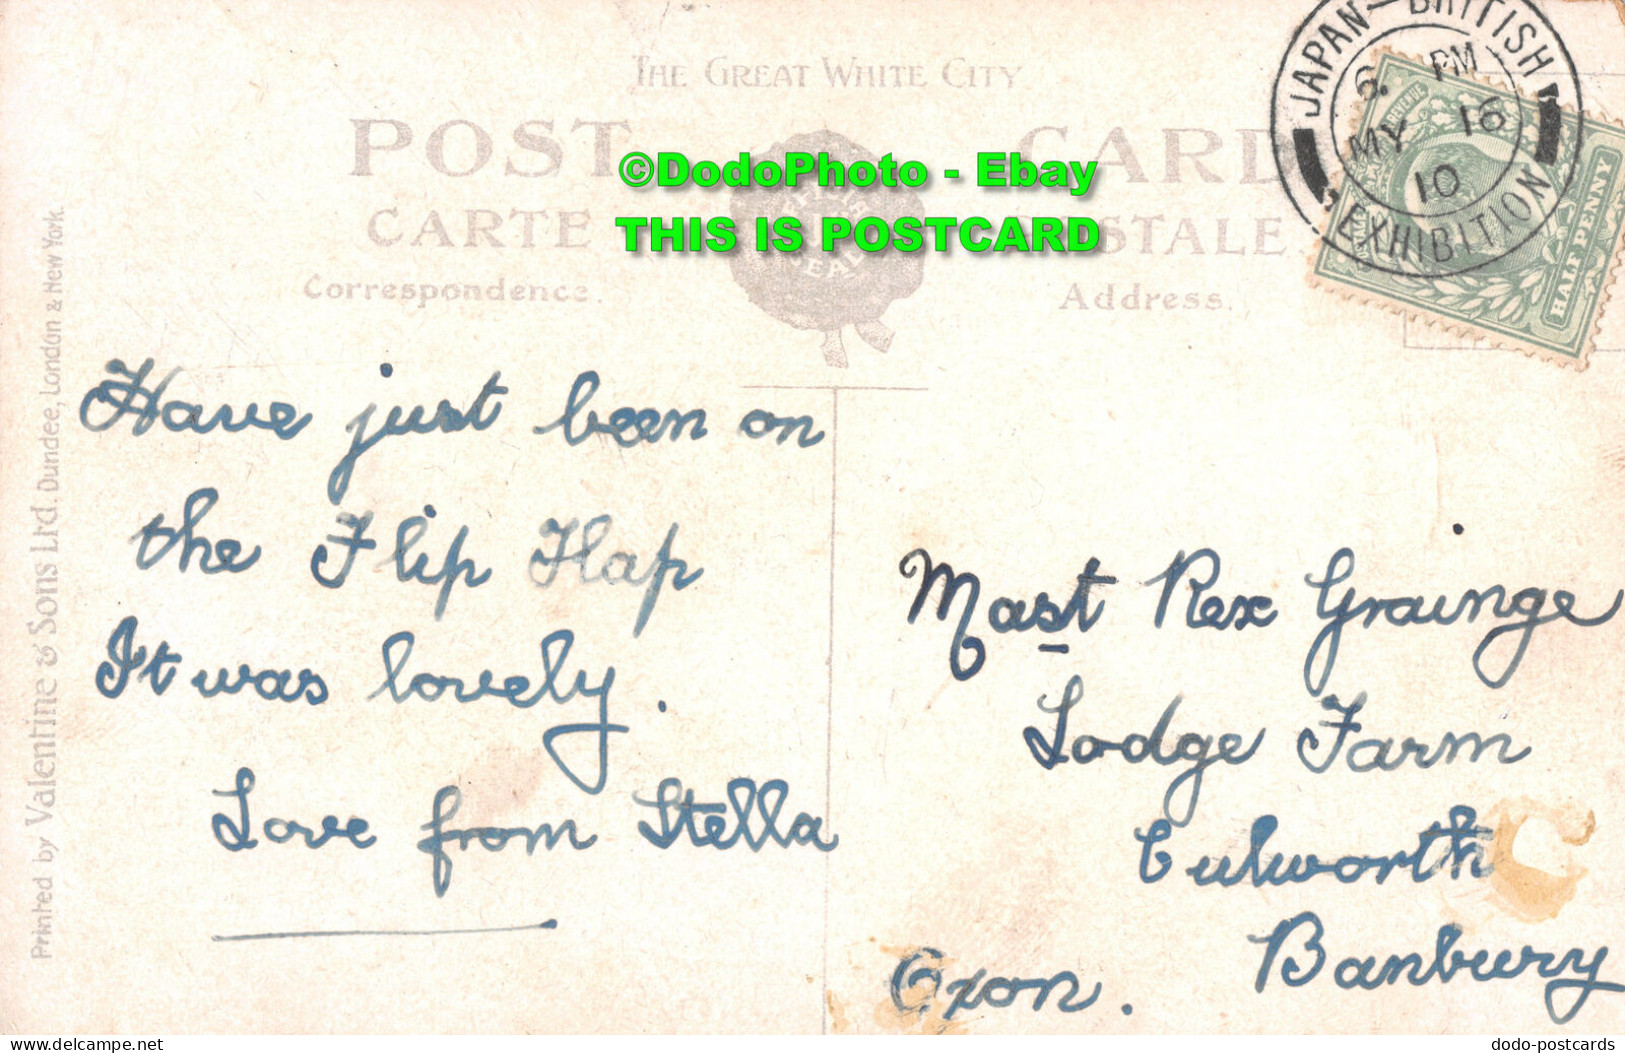 THE GREAT WHITE CITY
POST CARD
CARTE POSTALE
Correspondence.
Address.
©DodoPhoto - Ebay
THIS IS POSTCARD
SEAL
JAPAN-BRITISH
6. PM
MY 16
10
EXHIBITION
REVENUE
HALF PENNY
Printed by Valentine & Sons Ltd. Dundee, London & New York.
Have just been on
the Flip Flap
It was lovely.
Love from Stella
Mast Rex Grainge
Lodge Farm
Culworth
Banbury
Oxon.
delcampe.net
dodo-postcards